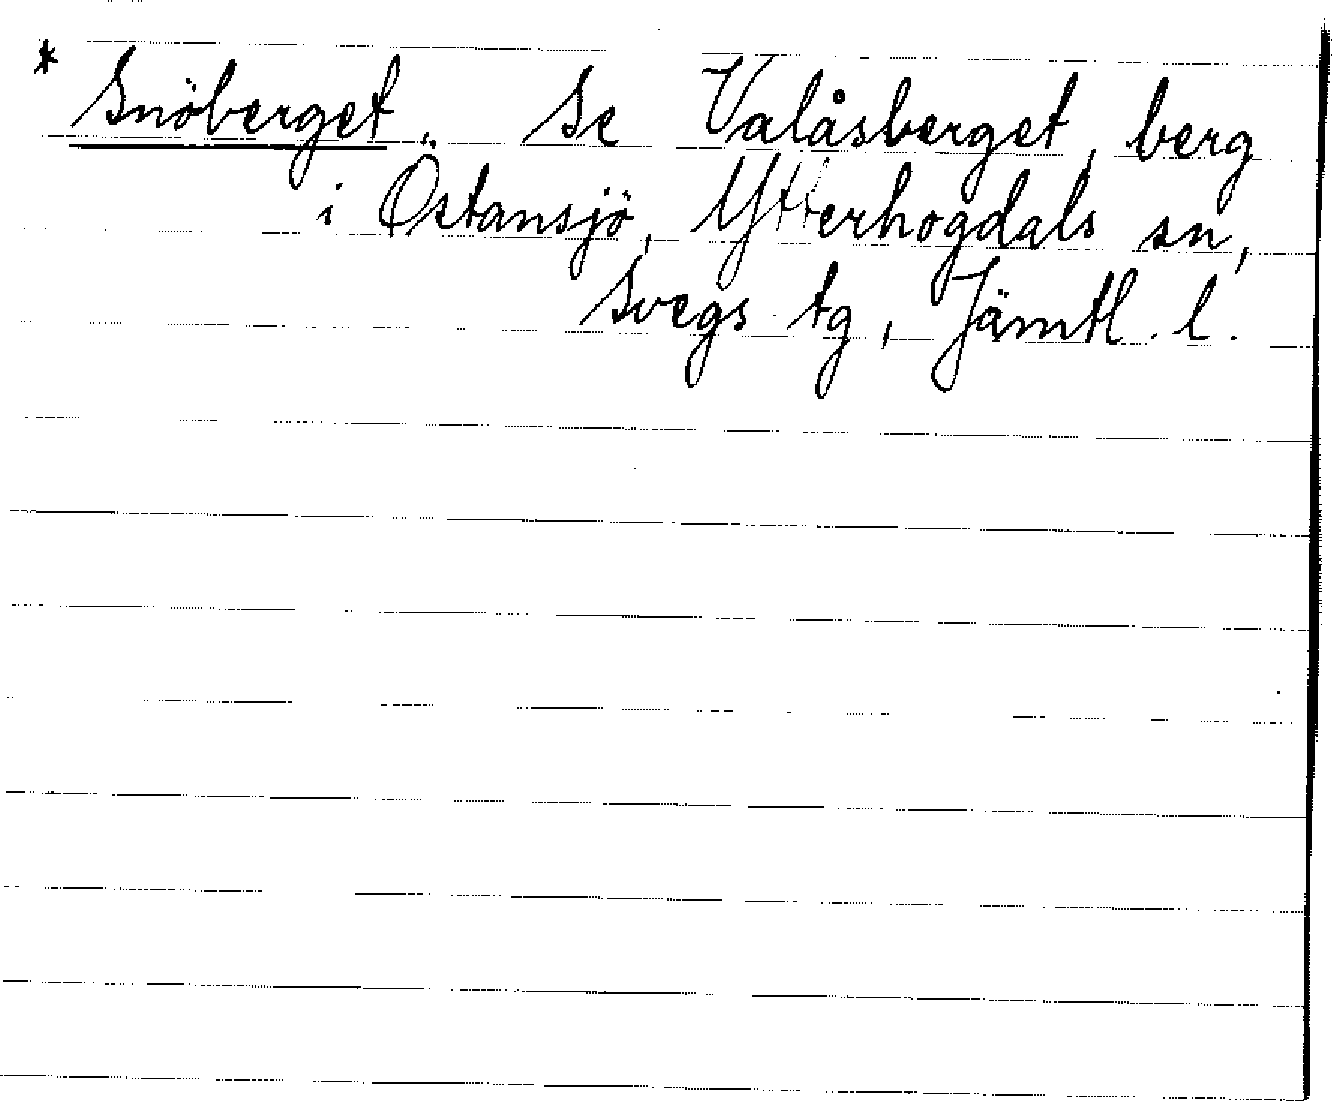 * Snöberget. Se Valåsberget, berg
i Östansjö, Ytterhogdals sn,
Svegs tg, Jämtl. l.